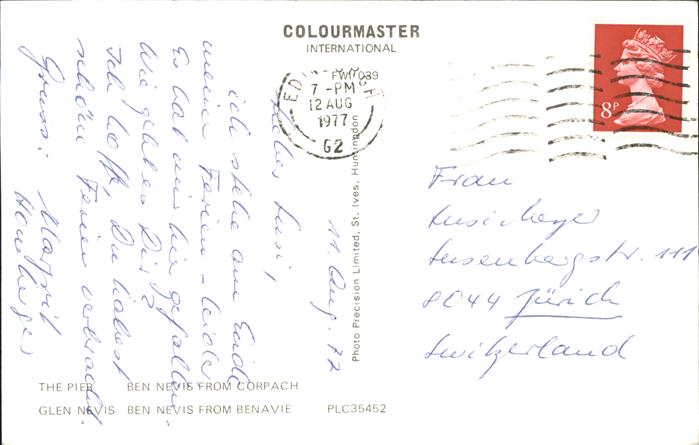 COLOURMASTER
INTERNATIONAL
PWI 7039
7 -PM
12 AUG
1977
G2
8P
11. Aug. 77
Liebe Susi,
ich stehe am Ende
meiner Ferien - leider
Es hat mir hier gefallen.
Wie geht es Dir?
Ich hoffe, Du habest
schöne Ferien verbracht.
Gruss: Margrit
Photo Precision Limited, St. Ives, Huntingdon
Frau
Susi Meyer
Susenbergstr. 111
8044 Zürich
Switzerland
THE PIER BEN NEVIS FROM CORPACH
GLEN NEVIS BEN NEVIS FROM BENAVIE PLC35452